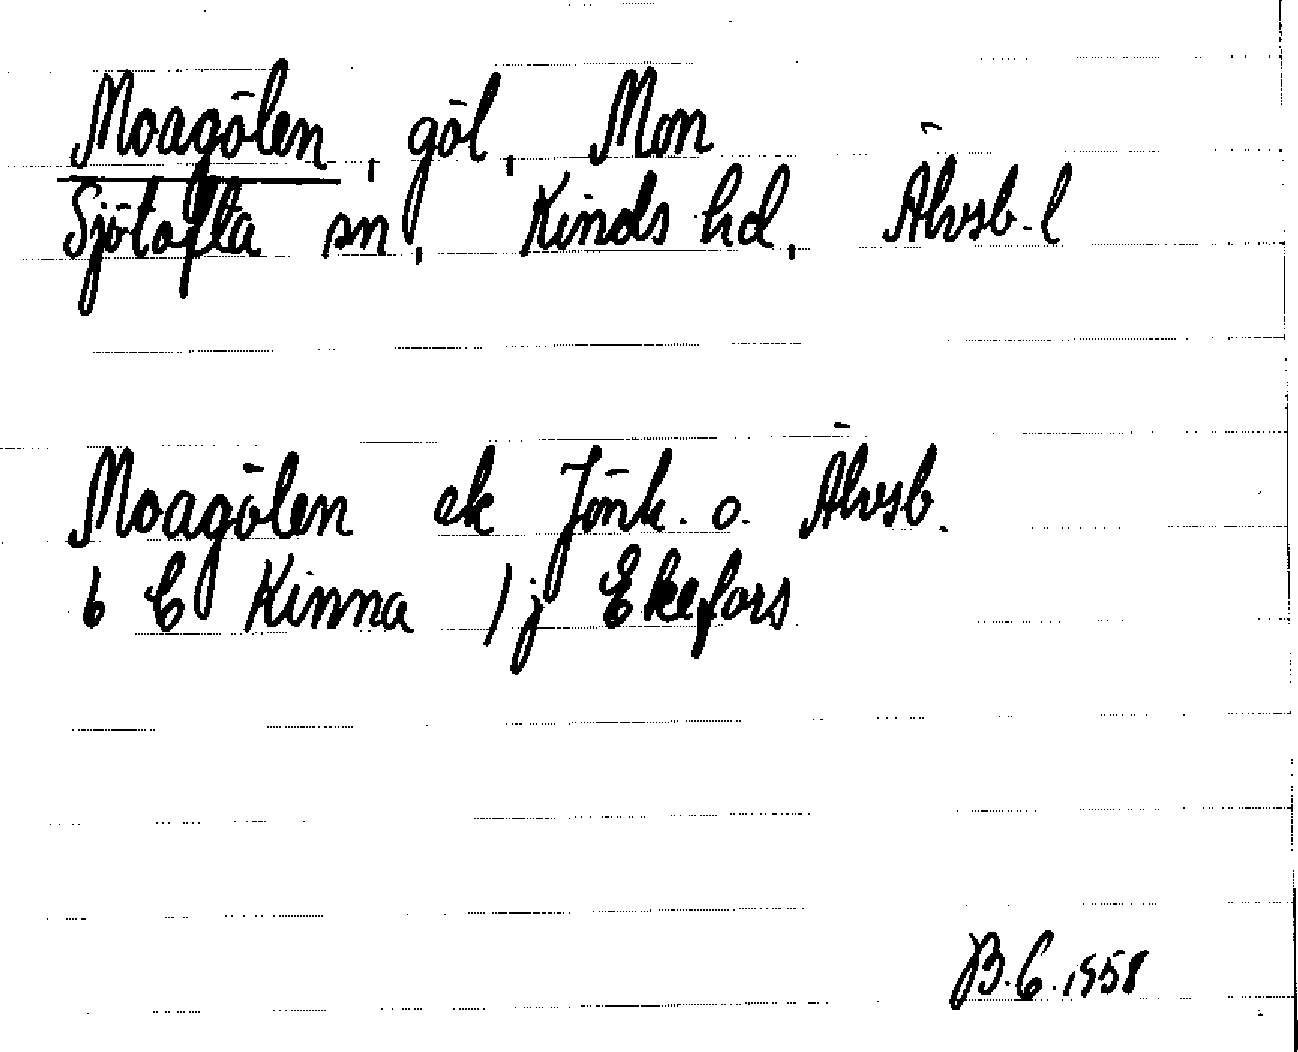 Moagölen, göl, Mon
Sjötofta sn, Kinds hd, Älvsb. l
Moagölen ek Jönk. o. Älvsb.
6 C Kinna 1 j Ekefors
B. C. 1958